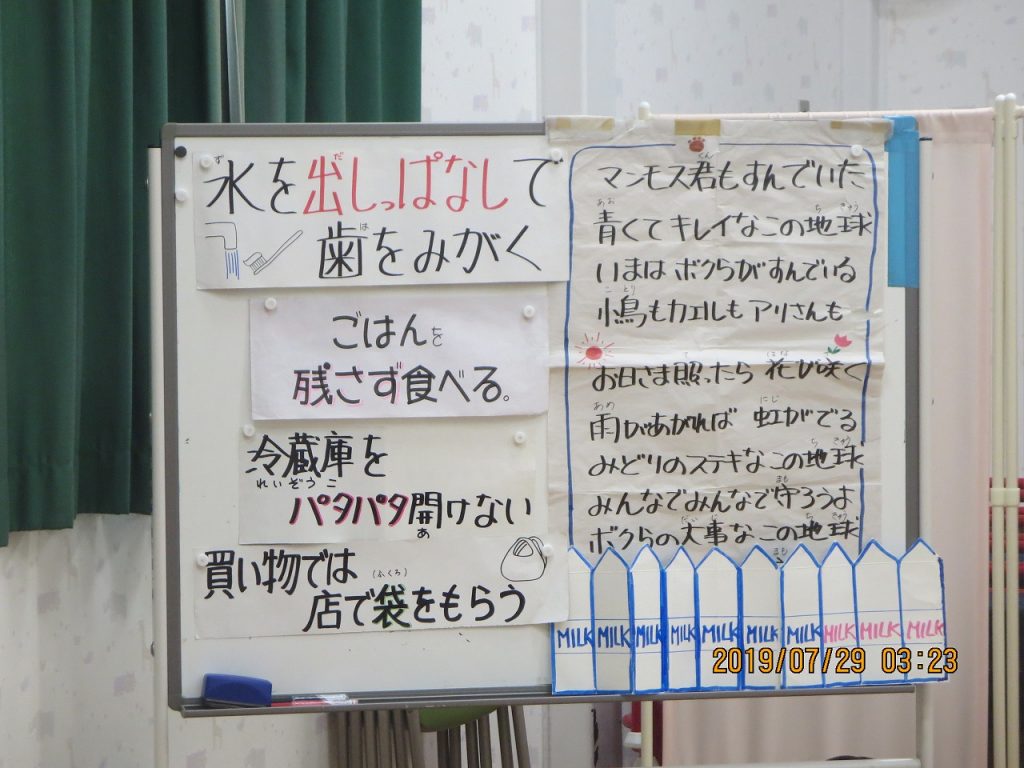 水を出しっぱなしで
歯をみがく
ごはんを
残さず食べる。
冷蔵庫を
れいぞうこ
パタパタ開けない
あ
買い物では
(ふくろ)
店で袋をもらう
マンモス君もすんでいた
青くてキレイなこの地球
いまはボクらがすんでいる
小鳥もカエルもアリさんも
お日さま照ったら 花が咲く
雨があがれば 虹がでる
みどりのステキなこの地球
みんなでみんなで守ろうよ
ボクらの大事なこの地球
MILK MILK MILK MILK MILK MILK MILK MILK MILK MILK
2019/07/29 03:23